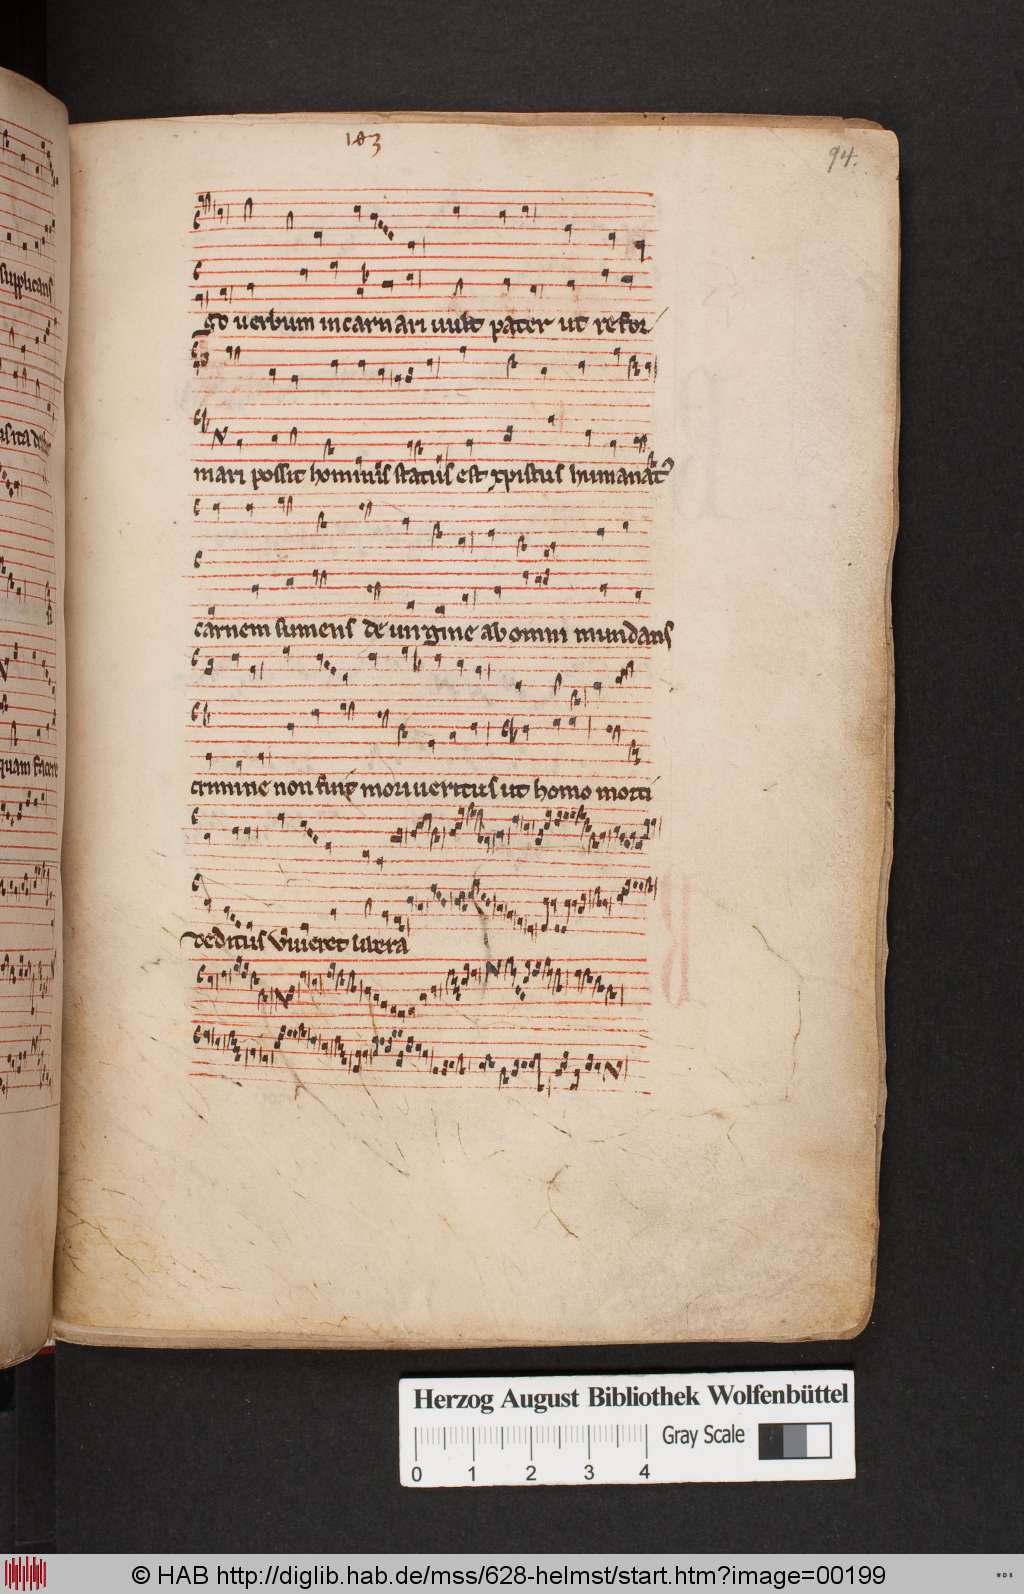 103
94.
supplicans
go uerbum incarnari uult pater ut refor
mari possit hominis status est xpistus humanat
carnem sumens de uirgine ab omni mundans
quam facere
crimine non fuit mori ueritus ut homo morti
deditus uiueret libera
Herzog August Bibliothek Wolfenbüttel
Gray Scale
0 1 2 3 4
© HAB http://diglib.hab.de/mss/628-helmst/start.htm?image=00199